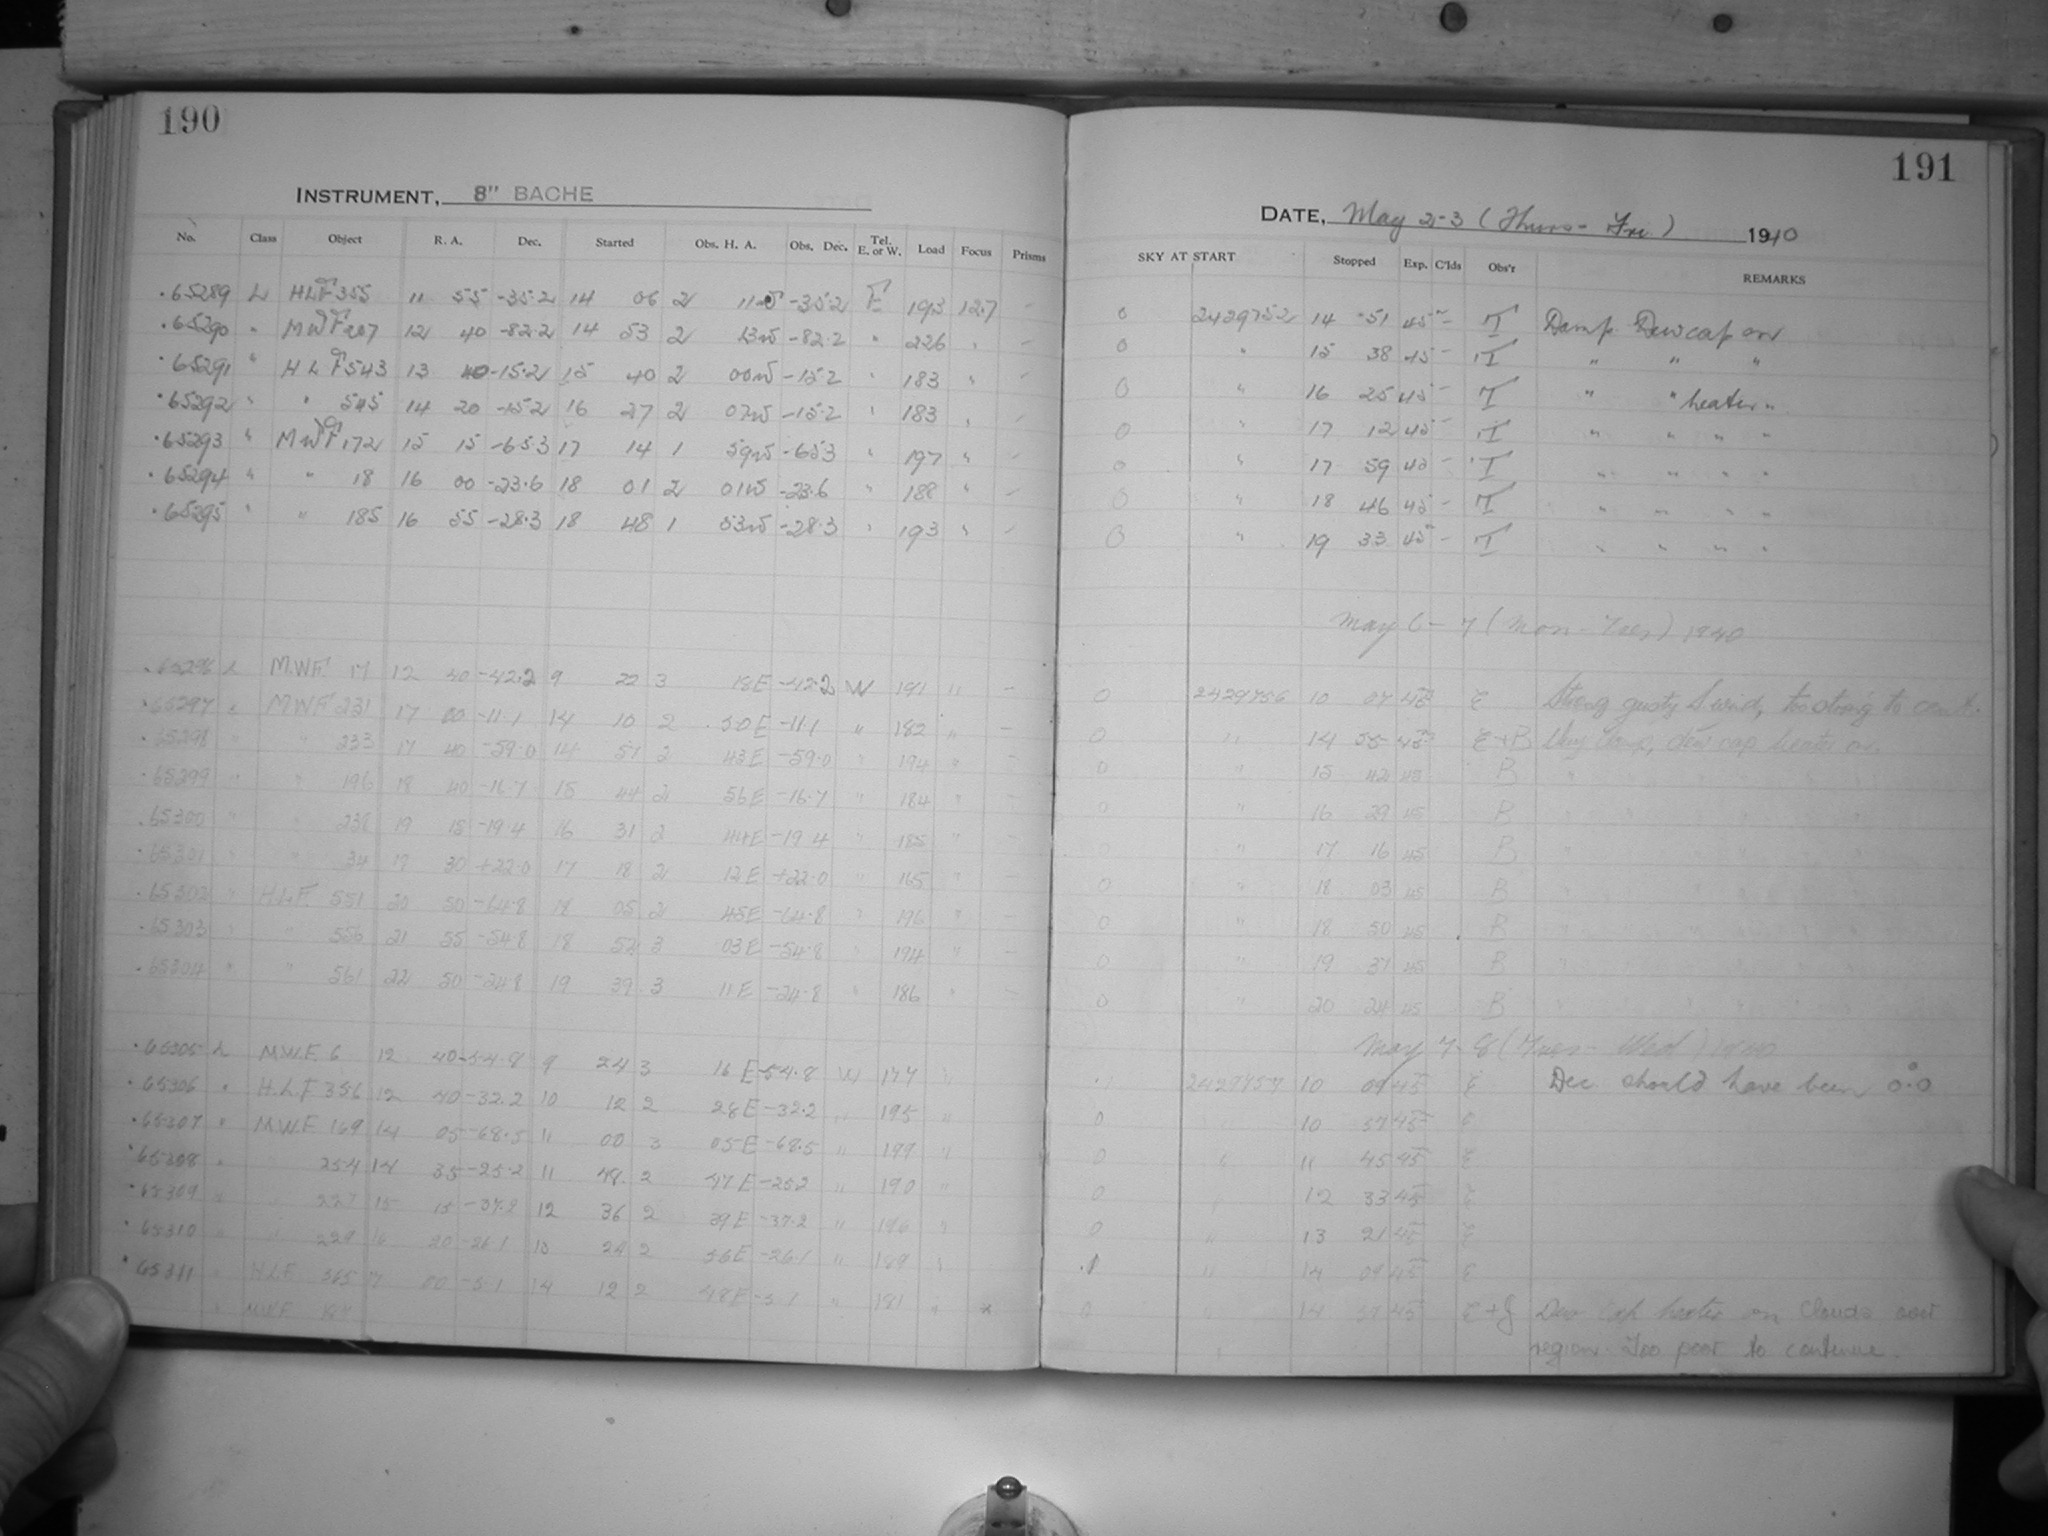 190
INSTRUMENT, 8" BACHE
No. Class Object R. A. Dec. Started Obs. H. A. Obs. Dec. Tel. E. or W. Load Focus Prisms
.65289 L HLF 355 11 55 -35.2 14 06 2 11W -35.2 E 193 12.7 –
.65290 " MWF 207 12 40 -82.2 14 53 2 23W -82.2 " 226 " –
.65291 " HLF 543 13 40 -15.2 15 40 2 00W -15.2 " 183 " –
.65292 " " 545 14 20 -15.2 16 27 2 07W -15.2 " 183 "
.65293 " MWF 172 15 15 -65.3 17 14 1 59W -65.3 " 197 " –
.65294 " " 18 16 00 -23.6 18 01 2 01W -23.6 " 188 " –
.65295 " " 185 16 55 -28.3 18 48 1 53W -28.3 " 193 " –
.65296 L M.W.F. 17 12 40 -42.2 9 22 3 18E -42.2 W 191 " –
.65297 " MWF 231 17 00 -11.1 14 10 2 50E -11.1 " 182 " –
.65298 " " 233 17 40 -59.0 14 57 2 43E -59.0 " 194 " –
.65299 " " 196 18 40 -16.7 15 44 2 56E -16.7 " 184 " –
.65300 " " 238 19 15 -19.4 16 31 2 44E -19.4 " 185 " –
.65301 " " 34 19 30 +22.0 17 18 2 12E +22.0 " 165 " –
.65302 " H.L.F. 551 20 50 -64.8 18 05 2 45E -64.8 " 196 " –
.65303 " " 556 21 55 -54.8 18 52 3 03E -54.8 " 194 " –
.65304 " " 561 22 50 -24.8 19 39 3 11E -24.8 " 186 " –
.65305 L M.W.F. 6 12 40 -54.8 9 24 3 16E -54.8 W 177 "
.65306 " H.L.F 356 12 40 -32.2 10 12 2 28E -32.2 " 195 "
.65307 " M.W.F 169 14 05 -68.5 11 00 3 05E -68.5 " 199 "
.65308 " " 254 14 35 -25.2 11 48 2 47E -25.2 " 190 "
.65309 " " 227 15 15 -37.2 12 36 2 39E -37.2 " 196 "
.65310 " " 229 16 20 -26.1 13 24 2 56E -26.1 " 189 "
.65311 " H.L.F. 365 17 00 -5.1 14 12 2 48E -5.1 " 181 "
" M.W.F.
191
DATE, May 2-3 (Thurs- Fri) 1940
SKY AT START Stopped Exp. C'lds Obs'r REMARKS
0 2429752 14 51 45 – T Damp Dewcap on
0 " 15 38 45 – T " " "
0 " 16 25 45 – T " " heater "
0 " 17 12 45 – T " " " "
0 " 17 59 45 – T " " " "
0 " 18 46 45 – T " " " "
0 " 19 33 45 – T " " " "
May 6-7 (Mon-Tues) 1940
0 2429756 10 07 45 E Strong gusty S wind, too strong to cont.
0 " 14 55 45 E+B Very damp, dew cap heater on.
0 " 15 42 45 B
0 " 16 29 45 B
0 " 17 16 45 B
0 " 18 03 45 B
0 " 18 50 45 B
0 " 19 37 45 B
0 " 20 24 45 B
May 7-8 (Tues- Wed) 1940
.1 2429757 10 09 45 E Dec. should have been 0°.0
0 " 10 57 45 E
0 " 11 45 45 E
0 " 12 33 45 E
0 " 13 21 45 E
.1 " 14 09 45 E
0 " 14 57 45 E+J Dew cap heater on Clouds over
region. Too poor to continue.